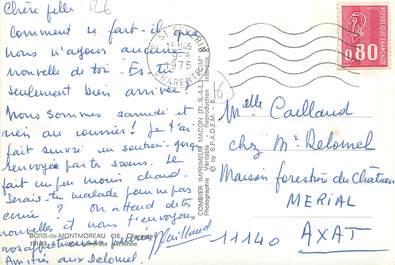 Chère fille
Comment ce fait-il que
nous n'ayons aucune
nouvelle de toi. Es-tu
seulement bien arrivée?
Nous sommes samedi et
rien au courrier! Je t'ai
fait suivre un soutien-gorge
renvoyée par ta sœur. Il
fait un peu moins chaud.
Serais-tu malade pour ne pas
écrire? On attend de tes
nouvelles et nous t'envoyons
Amitiés aux Delomel.
BORS-de-MONTMOREAU (16 - Charente)
COMBIER IMPRIMEUR MACON (T.-S.-A.-L.)
Photographie Véritable - Reproduction interdite
© by S.P.A.D.E.M.
1975
CHARENTE
RÉPUBLIQUE FRANÇAISE
0,80
Melle Caillaud
chez Mr Delomel
Maison forestière du Château
MERIAL
11140 AXAT